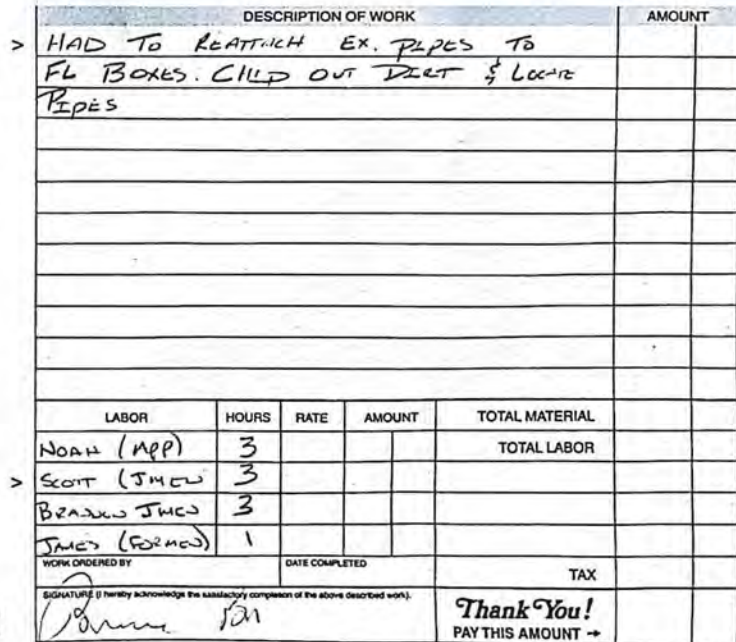 DESCRIPTION OF WORK AMOUNT
> HAD TO REATTACH EX. PIPES TO
FL BOXES. OUT DIRT & LOCATE
PIPES
LABOR HOURS RATE AMOUNT TOTAL MATERIAL
NOAH (APP) 3 TOTAL LABOR
> SCOTT (JMEN 3
BRANDON JMEN 3
JAMES (FORMEN) 1
WORK ORDERED BY DATE COMPLETED
TAX
SIGNATURE (I hereby acknowledge the satisfactory completion of the above described work).
Thank You!
PAY THIS AMOUNT →